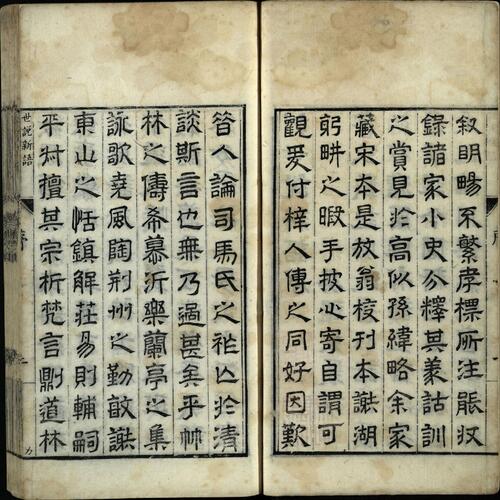 叙明暢不繁孝標所注能収
錄諸家小史分釋其義詁訓
之賞見於高似孫緯略余家
藏宋本是放翁校刊本謝湖
躬畊之暇手披心寄自謂可
觀爰付梓人傳之同好因歎
昔人論司馬氏之祚亡於清
談斯言也無乃過甚矣乎竹
林之儔希慕沂樂蘭亭之集
詠歌堯風陶荊州之勤敏謝
東山之恬鎮解莊易則輔嗣
平叔擅其宗析梵言則道林
世說新語
序